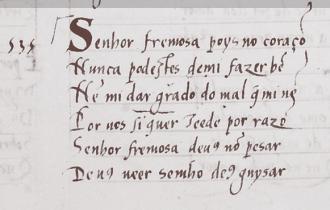 535 Senhor fremosa poys no coraçõ
Nunca podestes demi fazer bẽ
Nẽ mi dar grado do mal q̃ mi uẽ
Por uos si quer teede por razõ
Senhor fremosa deus nõ pesar
Deus ueer semho deꝯ guysar